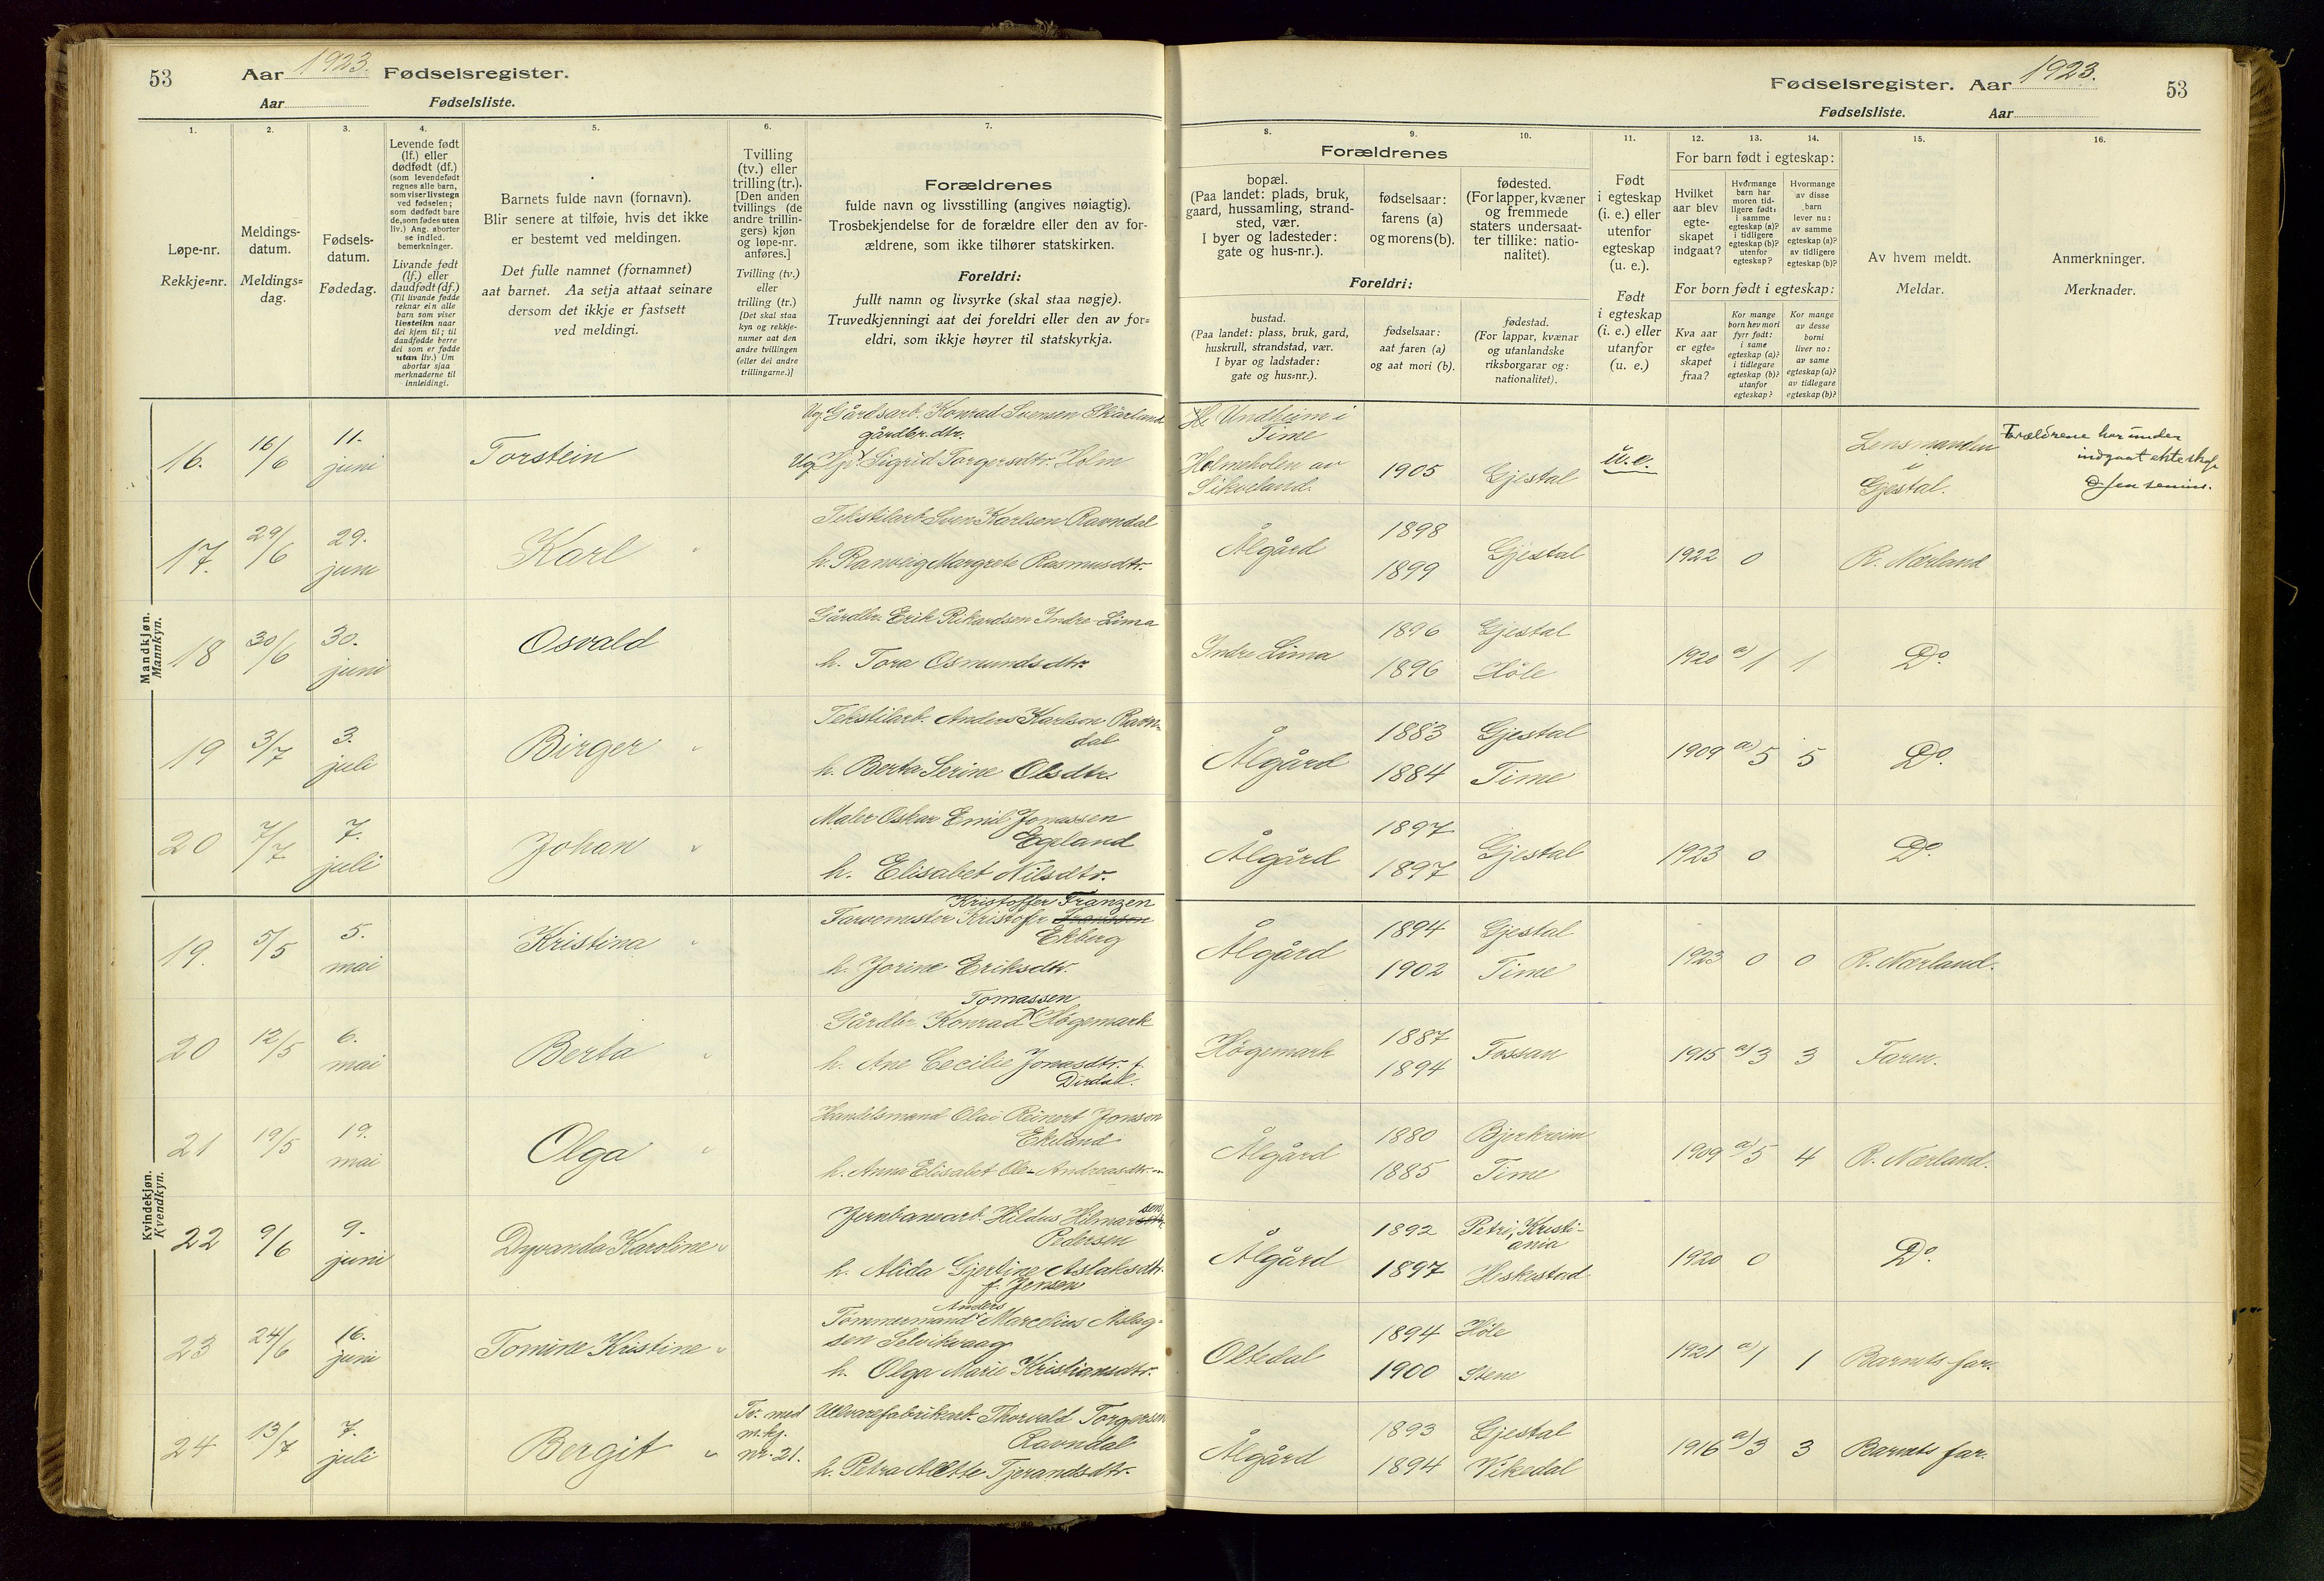 53
Aar 1923. Fødselsregister.
Aar Fødselsliste.
Fødselsregister. Aar 1923.
53
Fødselsliste. Aar
1.
2.
3.
4.
5.
6.
7.
8.
9.
10.
11.
12.
13.
14.
15.
16.
Løpe-nr.
Rekkje-nr.
Meldings-
datum.
Meldings-
dag.
Fødsels-
datum.
Fødedag.
Levende født
(lf.) eller
dødfødt (df.)
(som levendefødt
regnes alle barn,
som viser livstegn
ved fødselen;
som dødfødt bare
de, som fødes uten
liv.) Ang. aborter
se indled.
bemerkninger.
Livande født
(lf.) eller
daudfødt (df.)
(Til livande fødde
reknar ein alle
barn som viser
livsteikn naar
dei kjem til; til
daudfødde berre
dei som er fødde
utan liv.) Um
abortar sjaa
merknaderne til
innleidingi.
Barnets fulde navn (fornavn).
Blir senere at tilføie, hvis det ikke
er bestemt ved meldingen.
Det fulle namnet (fornamnet)
aat barnet. Aa setja attaat seinare
dersom det ikkje er fastsett
ved meldingi.
Tvilling
(tv.) eller
trilling (tr.).
[Den anden
tvillings (de
andre trillin-
gers) kjøn
og løpe-nr.
anføres.]
Tvilling (tv.)
eller
trilling (tr.)
[Det skal staa
kyn og rekkje-
numer aat den
andre tvillingen
(eller dei andre
trillingarne.)]
Forældrenes
fulde navn og livsstilling (angives nøiagtig).
Trosbekjendelse for de forældre eller den av for-
ældrene, som ikke tilhører statskirken.
Foreldri:
fullt namn og livsyrke (skal staa nøgje).
Truvedkjenningi aat dei foreldri eller den av for-
eldri, som ikkje høyrer til statskyrkja.
Forældrenes
bopæl.
(Paa landet: plads, bruk,
gaard, hussamling, strand-
sted, vær.
I byer og ladesteder:
gate og hus-nr.).
fødselsaar:
farens (a)
og morens (b).
fødested.
(For lapper, kvæner
og fremmede
staters undersaat-
ter tillike: natio-
nalitet).
Foreldri:
bustad.
(Paa landet: plass, bruk, gard,
huskrull, strandstad, vær.
I byar og ladstader:
gate og hus-nr.).
fødselsaar:
aat faren (a)
og aat mori (b).
fødestad.
(For lappar, kvænar
og utanlandske
riksborgarar og:
nationalitet).
Født
i egteskap
(i. e.) eller
utenfor
egteskap
(u. e.).
Født
i egteskap
(i. e.) eller
utanfor
(u. e.)
For barn født i egteskap:
Hvilket
aar blev
egte-
skapet
indgaat?
Hvormange
barn har
moren tid-
ligere født:
i samme
egteskap (a)?
i tidligere
egteskap (b)?
utenfor
egteskap?
Hvormange
av disse
barn
lever nu:
av samme
egteskap (a)?
av tidligere
egteskap (b)?
For born født i egteskap:
Kva aar
er egte-
skapet
fraa?
Kor mange
born hev mori
fyrr født:
i same
egteskap (a)?
i tidlegare
egteskap (b)?
utanfor
egteskap?
Kor mange
av desse
borni
liver no:
av same
egteskap (a)?
av tidlegare
egteskap (b)?
Av hvem meldt.
Meldar.
Anmerkninger.
Merknader.
Mandkjøn.
Mannkyn.
16. 16/6 11. juni Torstein
Ug. Gårdsarb. Konrad Svensen Skårland
gårdbr.dtr.
Ug. Sigrid Torgersdtr. Holm
Undheim i
Time
Holmeholen av
Sikveland.
1905 Gjestal u.e.
Lensmanden
i
Gjestal.
Forældrene har under
indgaat ekteskap
17. 29/6 29. juni Karl
Tekstilarb. Sven Karlsen Ravndal
h. Ranveig Margrete Rasmusdtr.
Ålgård 1898 1899 Gjestal 1922 0 R. Nærland
18 30/6 30. juni Osvald
Gårdbr. Erik Rikardsen Indre-Lima
h. Tora Osmundsdtr.
Indre Lima 1896 Gjestal
1896 Høle
1920 a) 1 1 Do.
19 3/7 3. juli Birger
Tekstilarb. Anders Karlson Ravn-
dal
h. Berta Serine Olsdtr.
Ålgård 1883 Gjestal
1884 Time
1909 a) 5 5 Do.
20 7/7 7. juli Johan
Maler Oskar Emil Jonassen
Egeland
h. Elisabet Nilsdtr.
Ålgård 1897 1897 Gjestal 1923 0 Do.
Kvindekjøn.
Kvendkyn.
19. 5/5 5. mai Kristina
Kristoffer Franzen
Farvemester Kristofr Franssen
Ekberg
h. Jorine Eriksdtr.
Ålgård 1894 Gjestal
1902 Time
1923 0 0 R. Nærland.
20 12/5 6. mai Berta
Tomassen
Gårdbr. Konrad Høgemark
h. Ane Cecilie Jonasdtr. f.
Dirdal.
Høgemark 1887 1894 Fossan 1915 a) 3 3 Faren.
21 19/5 19. mai Olga
Handelsmand Olai Reinert Jonsson
Ekeland
h. Anna Elisabet Ole-Andreasdtr.
Ålgård 1880 Bjerkreim
1885 Time
1909 a) 5 4 R. Nærland.
22 9/6 9. juni Dyvanda Karoline
Jernbanearb. Hildus Hilmarsen
Pedersen
h. Alida Gjertine Aslaksdtr.
f. Jensen
Ålgård 1892 Petri, Kristi-
ania
1897 Heskestad
1920 0 Do.
23 24/6 16. juni Tomine Kristine
Anders
Tømmermand Marcelius Aslag-
sen Selvikvaag
h. Olga Marie Kristiansdtr.
Oltedal 1894 Høle
1900
1921 a) 1 1 Barnets far.
24 13/7 7. juli Bergit
Tv. med
m.kj.
nr. 21.
Ullvarefabrikarb. Thorvald Torgersen
Ravndal
h. Petra Alette Tjerandsdtr.
Ålgård 1893 Gjestal
1894 Vikedal
1916 a) 3 3 Barnets far.